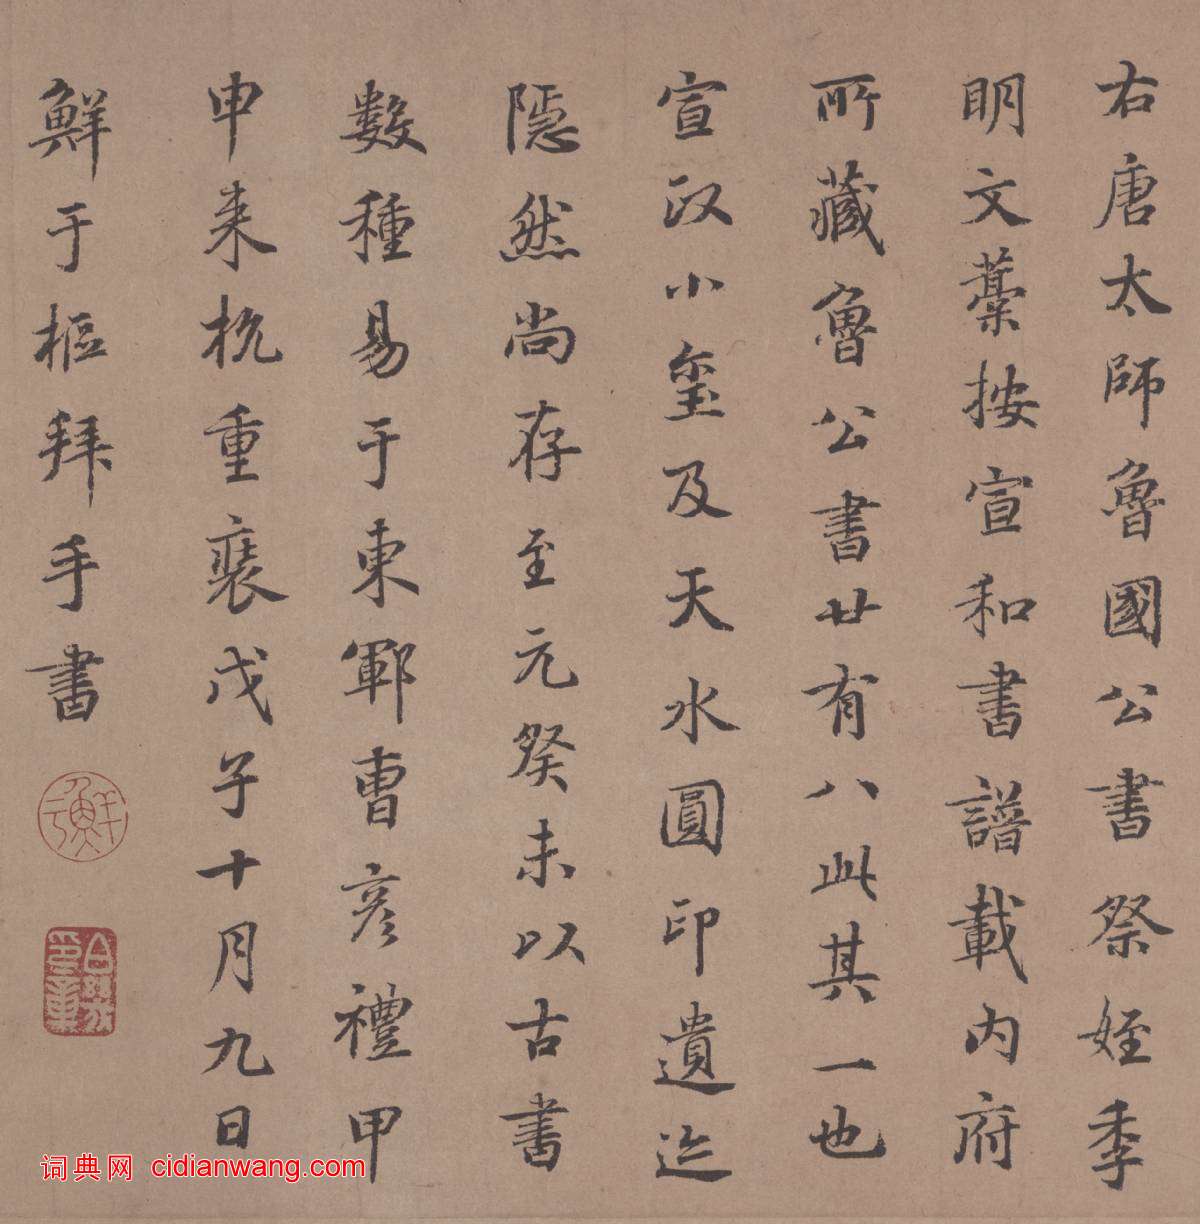 右唐太師魯國公書祭姪季
明文藁按宣和書譜載內府
所藏魯公書廿有八此其一也
宣政小璽及天水圓印遺迹
隱然尚存至元癸未以古書
數種易于東鄆曹彥禮甲
申来杭重裝戊子十月九日
鮮于樞拜手書
词典网 cidianwang.com